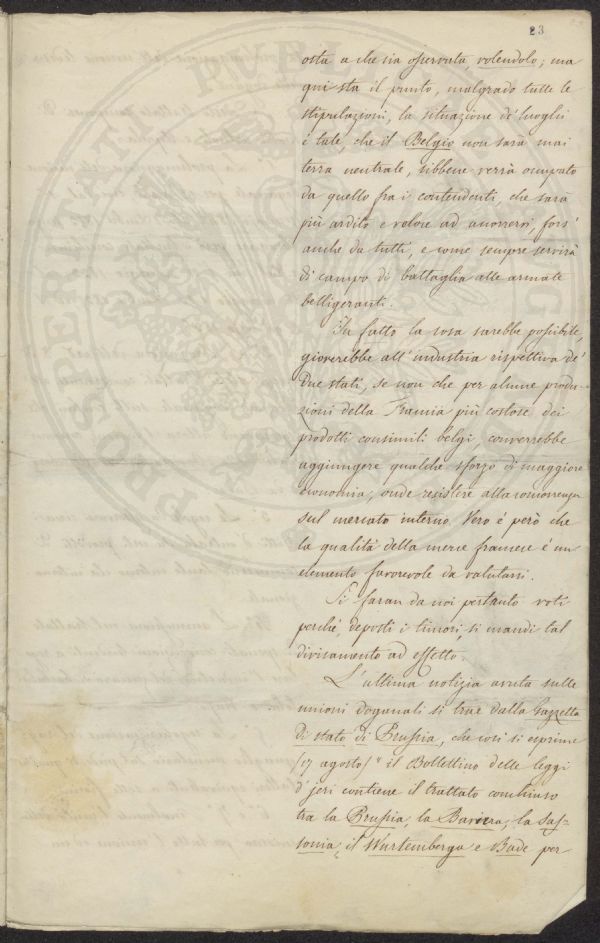 23
osta a che sia osservata, volendolo; ma
qui sta il punto, malgrado tutte le
stipulazioni, la situazione de' luoghi
è tale, che il Belgio non sarà mai
terra neutrale, sibbene verrà occupato
da quello fra i contendenti, che sarà
più ardito e veloce ad accorrervi, fors'
anche da tutti, e come sempre servirà
di campo di battaglia alle armate
belligeranti.
In fatto la cosa sarebbe possibile,
gioverebbe all'industria rispettiva de'
due stati, se non che per alcune produ-
zioni della Francia più costose dei
prodotti consimili belgi, converrebbe
aggiungere qualche sforzo di maggiore
economia, onde resistere alla concorrenza
sul mercato interno. Vero è però che
la qualità della merce francese è un
elemento favorevole da valutarsi.
Si faran da noi pertanto voti
perché, deposti i timori, si mandi tal
divisamento ad effetto.
L'ultima notizia avuta sulle
unioni doganali si trae dalla Gazzetta
di stato di Prussia, che così si esprime
(17 agosto) "il Bollettino delle leggi
d'jeri contiene il trattato conchiuso
tra la Prussia, la Baviera, la Sas-
sonia, il Wurtemberga e Bade per
PROSPERITATI PUBLICAE